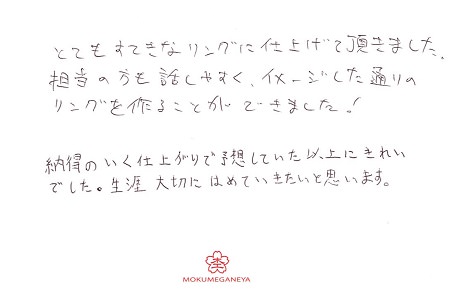 とてもすてきなリングに仕上げて頂きました。
担当の方も話しやすく、イメージした通りの
リングを作ることができました！
納得のいく仕上がりで予想していた以上にきれい
でした。生涯大切にはめていきたいと思います。
MOKUMEGANEYA